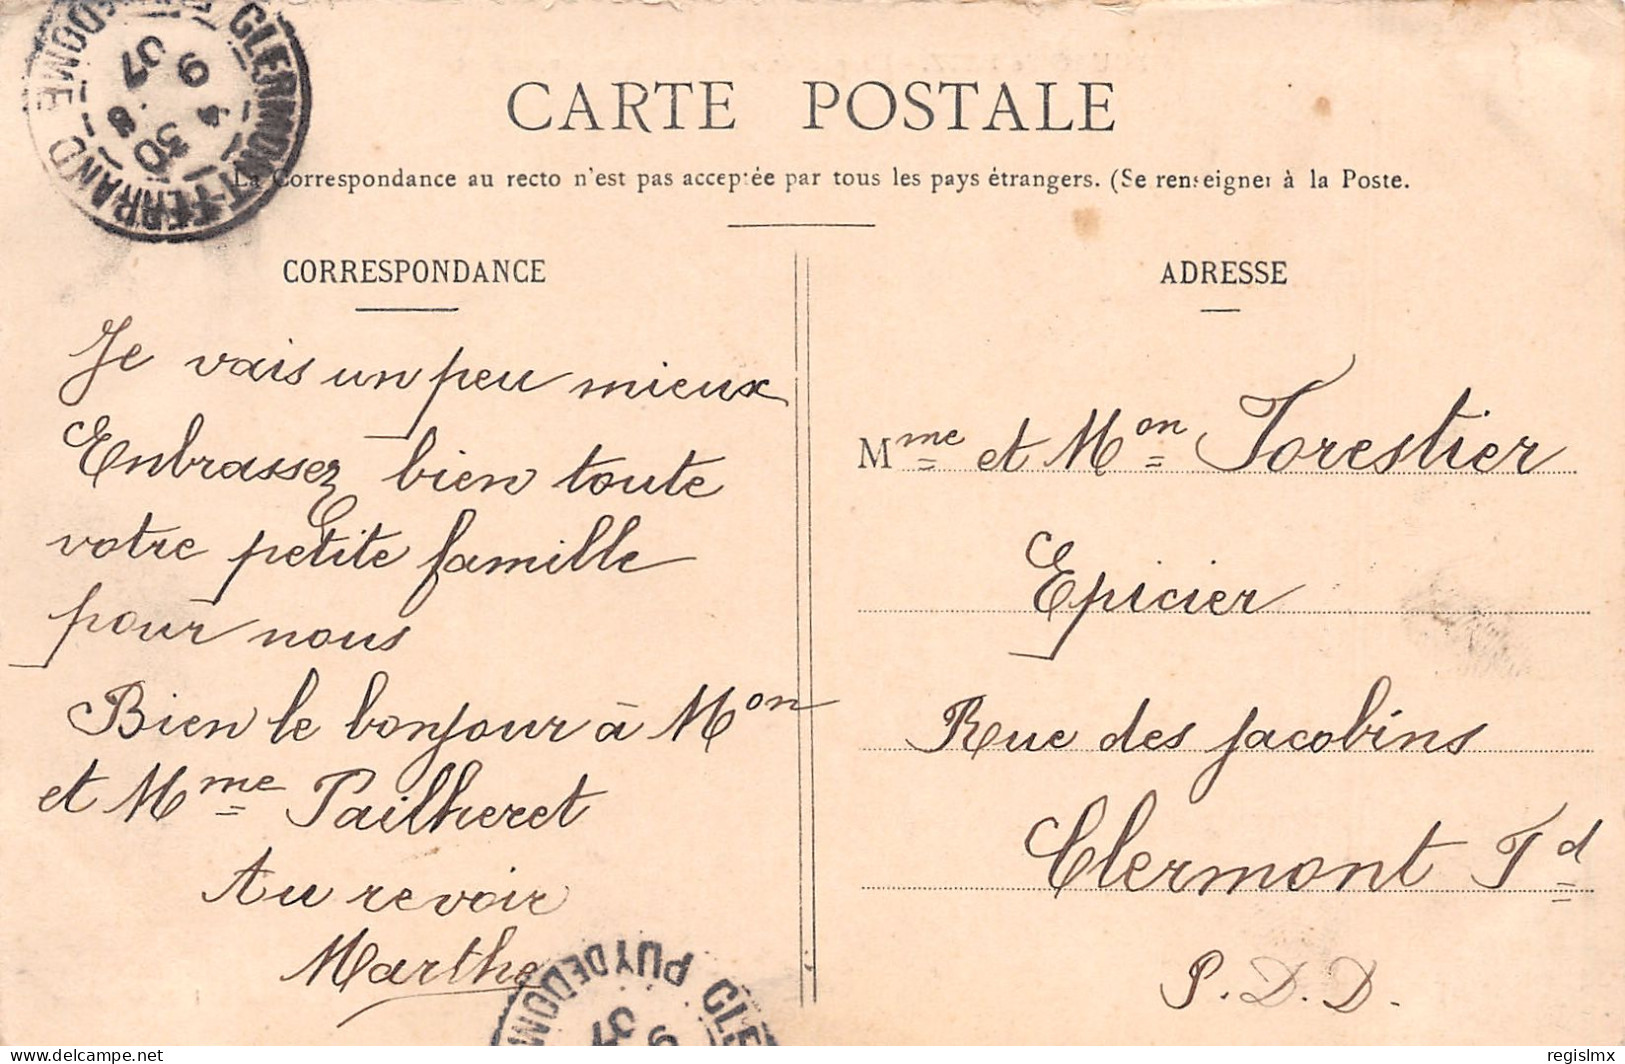 CARTE POSTALE
La Correspondance au recto n'est pas acceptée par tous les pays étrangers. (Se renseigner à la Poste.
CORRESPONDANCE
Je vais un peu mieux
Enbrassez bien toute
votre petite famille
pour nous
Bien le bonjour à Mon
et Mme Pailheret
Au revoir
Marthe
ADRESSE
Mme et Mon Forestier
Epicier
Rue des Jacobins
Clermont Fd
P.D.D.
CLERMONT-FERRAND
DOME
8 30
4 9
07
PUY DE DOM
CLE
9
07
delcampe.net
regislmx